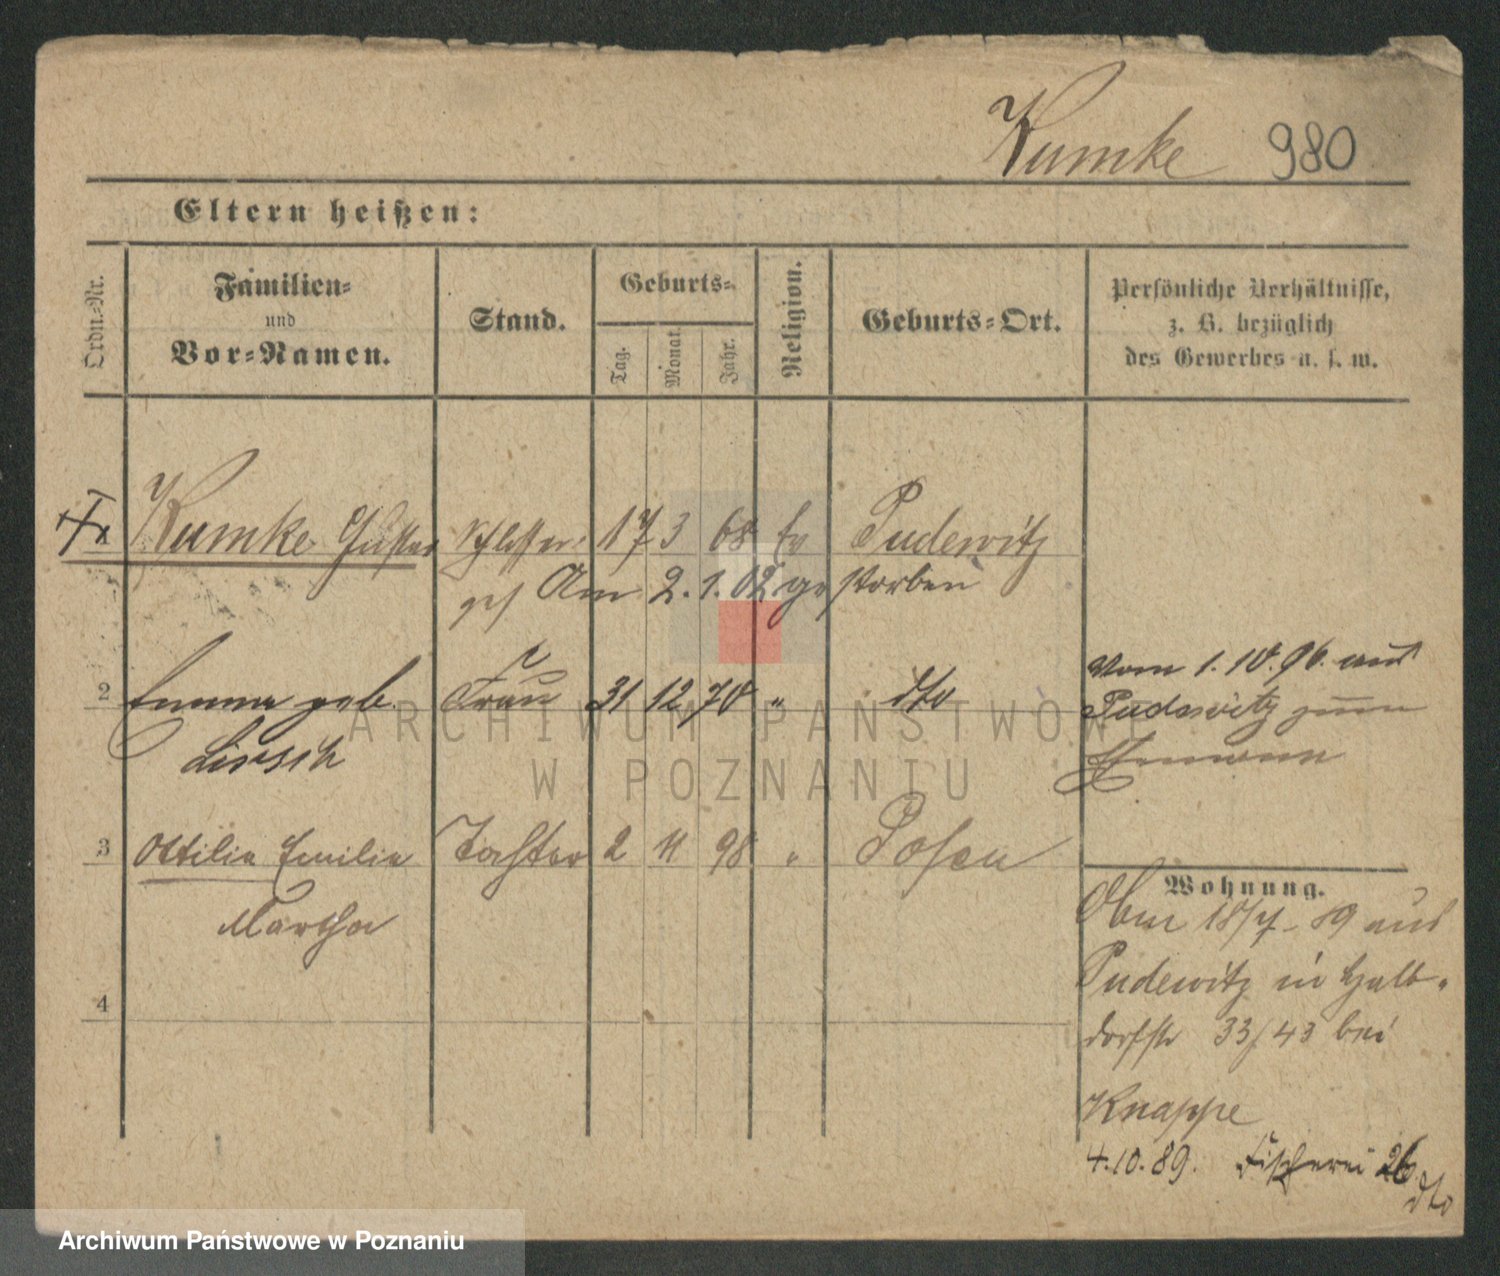 Kumke 980
Eltern heißen:
Ordn.-Nr.
Familien-
und
Vor-Namen.
Stand.
Geburts-
Tag.
Monat.
Jahr.
Religion.
Geburts-Ort.
Persönliche Verhältnisse,
z. B. bezüglich
des Gewerbes u. s. w.
Kumke Gustav Schlosser 17 3 68 Ev Pudewitz
Am 2.1.02 gestorben
2 Emma geb. Frau 31 12 70 " dto
Liersch
Vom 1.10.96. aus
Pudewitz zum
Ehemann
3 Ottilie Emilie Tochter 2 11 98 " Posen
Martha
4
Wohnung.
18/7-89 aus
Pudewitz in Halb-
dorfstr 33/43 bei
Knappe
4.10.89. Fischerei 26
dto
ARCHIWUM PAŃSTWOWE
W POZNANIU
Archiwum Państwowe w Poznaniu